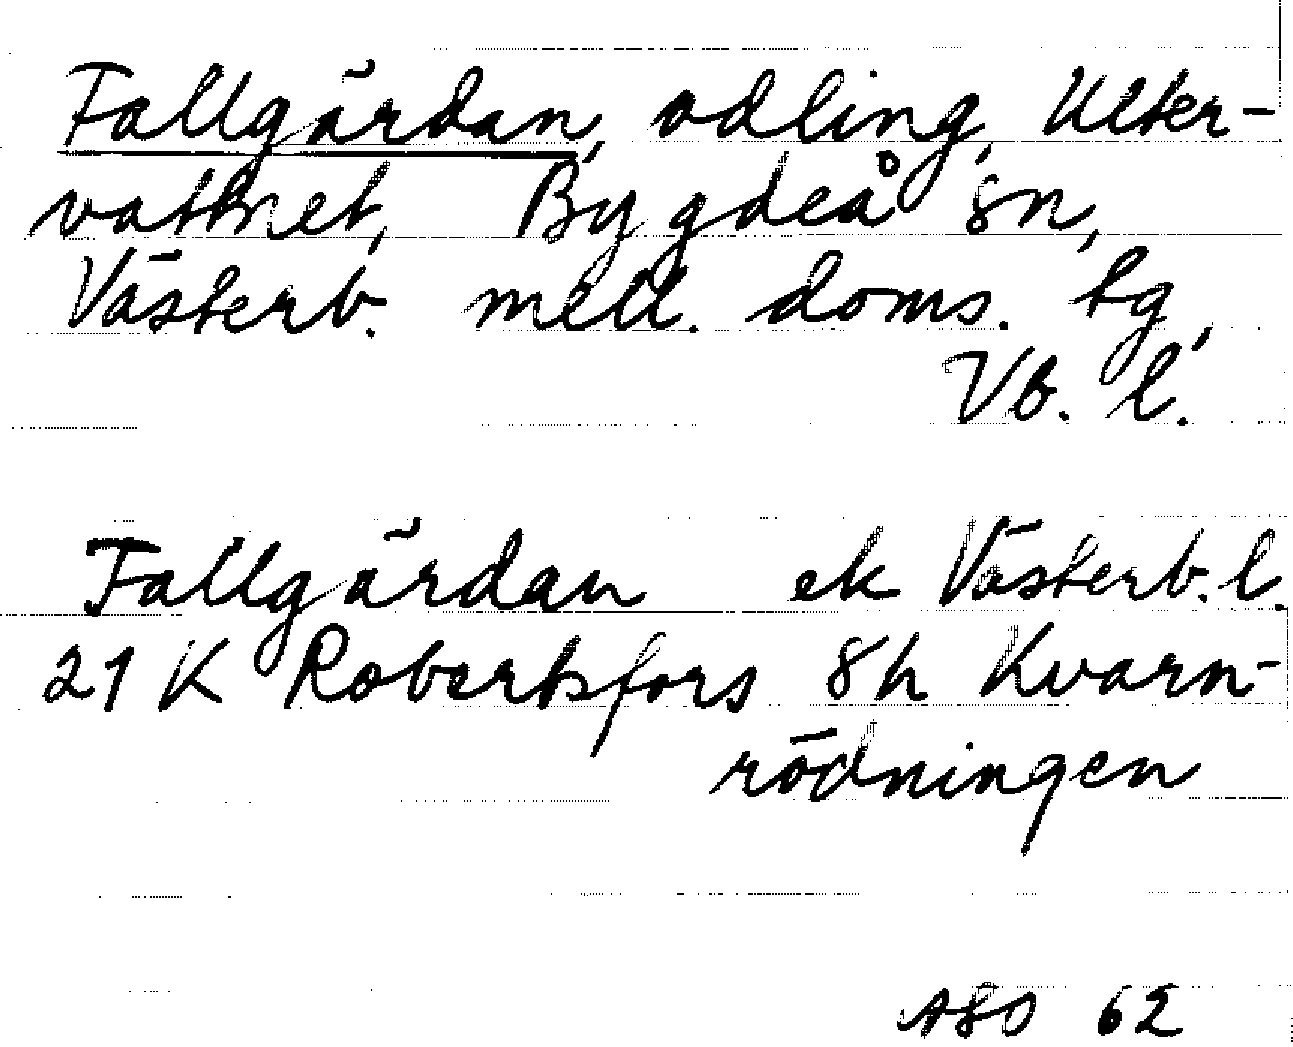 Fallgärdan, odling, Ulter-
vattnet, Bygdeå sn,
Västerb. mell. doms. tg,
Vb. l.
Fallgärdan ek Västerb. l.
21 K Robertsfors 8h Kvarn-
rödningen
ASO 62